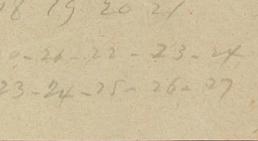 18 19 20 21
0-26-22-23-24
23-24-25-26-27